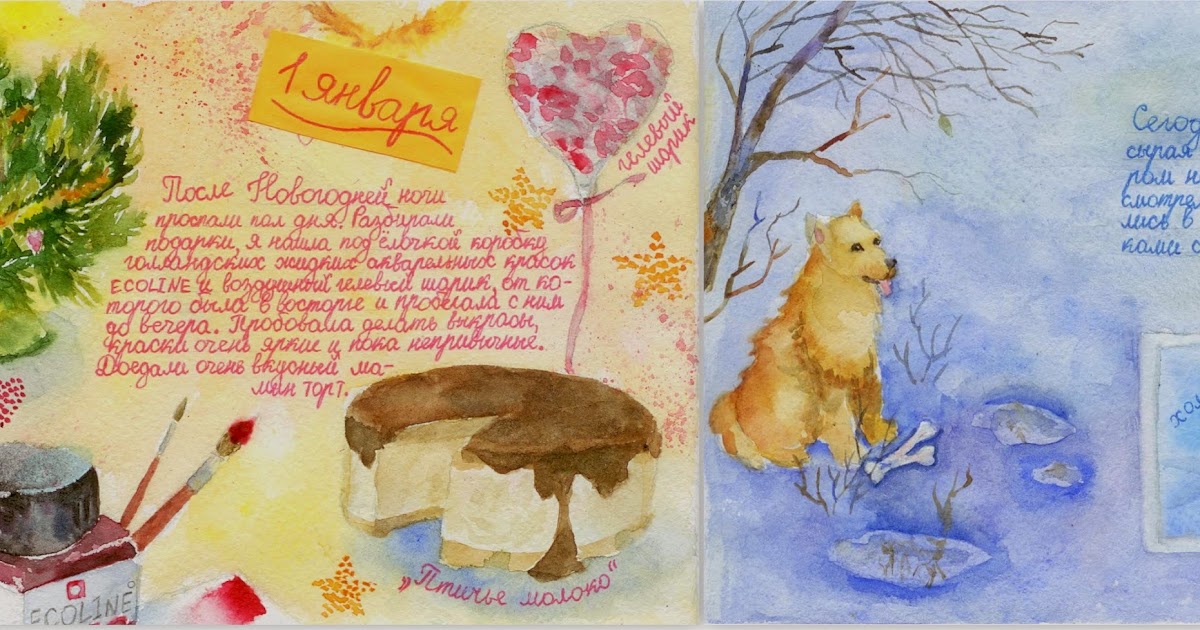 1 января
гелевый
шарик
После Новогодней ночи
проспали пол дня. Разбирали
подарки, я нашла под ёлочкой коробку
голландских жидких акварельных красок
ECOLINE и воздушный гелевый шарик, от ко-
торого была в восторге и пробегала с ним
до вечера. Пробовала делать выкрасы,
краски очень яркие и пока непривычные.
Доедали очень вкусный ма-
мин торт.
„Птичье молоко“
ECOLINE
Сегод
сырая
ром н
смотрел
лись в
ками с
хол